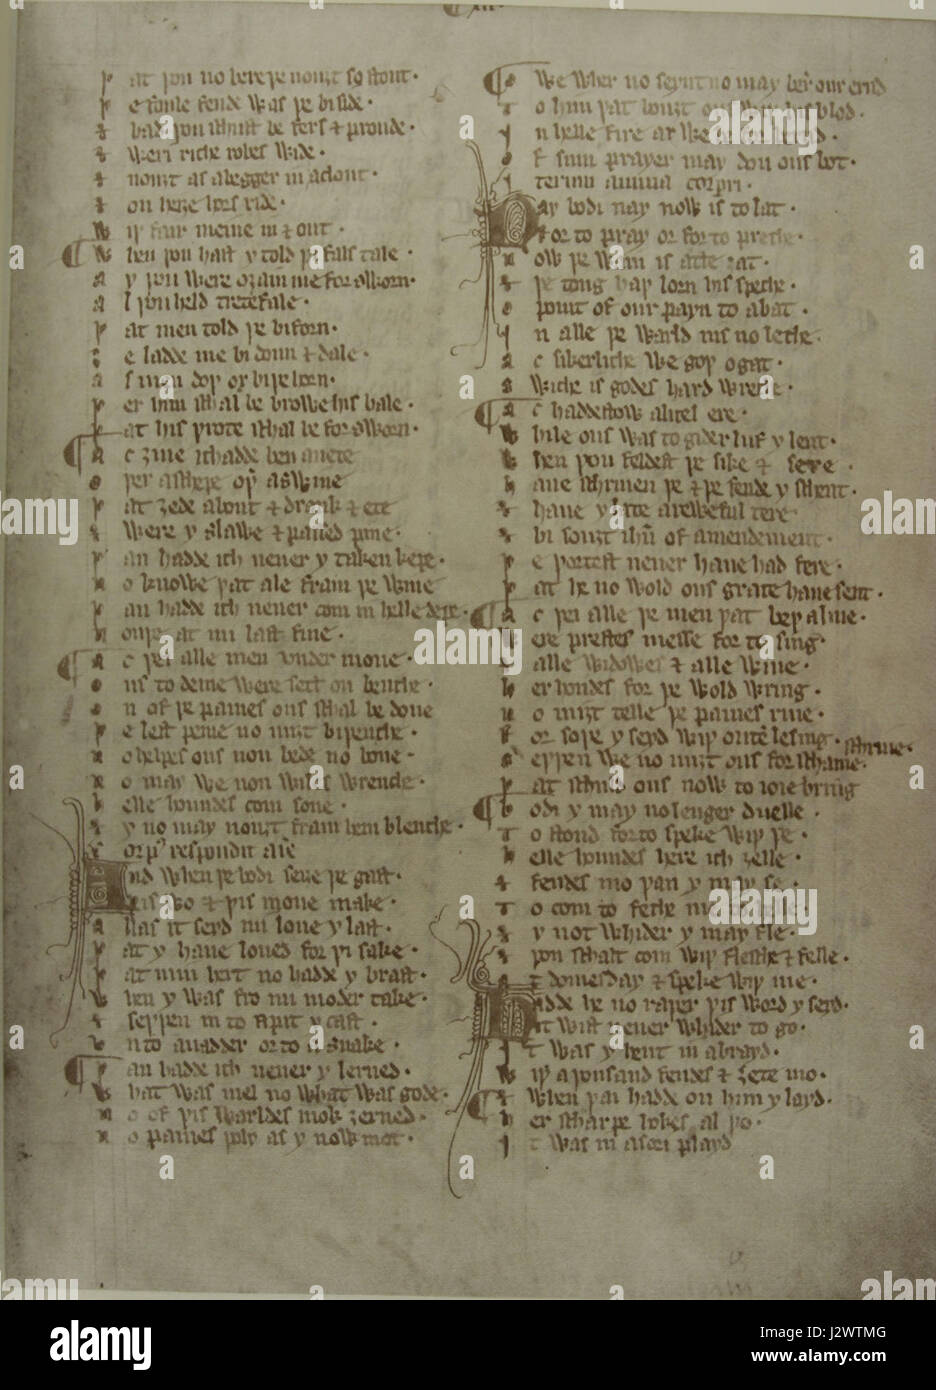 þ at þou no bere þe nouȝt so stout.
þ e foule fende was þe biside.
& bad þou schust be fers & proude.
& weri riche robes wide.
& nouȝt as a begger in a clout.
& on heȝe hors ride.
W iþ fair meine in & out.
W hen þou hast y told þi fals tale.
A y þou were oȝain me forsworn.
A l þou held
þ at men told þe biforn.
& e ladde me bi doun & dale.
A s man doþ ox biþe horn.
þ er him schal be browe his bale.
þ at his þrote schal be forschorn.
A c ȝiue ichadde ben
o þer a schepe oþer a swine
þ at ȝede about & drank & ete
& were y slawe & passed pine.
þ an hadde ich neuer y taken kepe.
n o knowe þat ale fram þe wine
þ an hadde ich neuer com in helle depe.
N ouþe at mi last fine.
A c þei alle men vnder mone.
o us to deme were sett on benche.
o n of þe paines ous schal be done
þ e lest peine no miȝt biþenche.
n o helpes ous non bede no bone.
n o may we non wiles wrenche.
h elle houndes com sone.
& y no may nouȝt fram hem blenche.
C orpus respondit anime
And when þe bodi seye þe gast.
þis wo & þis mone make.
A llas it seyd mi loue y last.
þ at y haue loued for þi sake.
þ at min hert no hadde y brast.
W hen y was fro mi moder take.
& seþþen in to a pit y cast.
v nto a nadder or to a snake.
þ an hadde ich neuer y lerned.
W hat was mel no what was gode.
n o of þis warldes mok ȝerned.
n o paines þoly as y now mot.
n o wher no seynt no may ber our ernd
T o him þat bouȝt ous wiþ his blod.
I n helle fire ar we be to brend.
o f sum prayer may don ous bot.
I terum anima corpori.
Nay bodi nay now is to lat.
For to pray or for to preche.
n ow þe wain is atte ȝat.
& þe tong haþ lorn his speche.
o point of our payn to abat.
I n alle þe warld nis no leche.
A c siberliche we goþ o gat.
s wiche is godes hard wreche.
A c haddestow a litel ere.
W hile ous was to gider liif y lent.
W hen þou feldest þe sike & sere.
h aue schriuen þe & þe fende y schent.
& haue y rewful tere.
& bi souȝt ihu of amendement.
þ e þortest neuer haue had fere.
þ at he no wold ous grace haue sent.
A c þei alle þe men þat beþ aliue.
W ere prestes messe forto sing.
& alle widowes & alle wiue
h er hondes for þe wold wring.
n o miȝt telle þe paines riue.
f or soþe y seyd wiþ outen lesing.
s eþþen we no miȝt ous for schame schriue.
þ at schuld ous now to ioie bring
B odi y may no lenger duelle.
T o stond forto speke wiþ þe.
h elle houndes here ich ȝelle.
& fendes mo þan y may se.
T o com to feche me to helle.
& y not whider y may fle.
& þou schalt com wiþ flesche & felle.
A t domesday & speke wiþ me.
Hadde he no raþer þis word y seyd.
it wist neuer whider to go.
I t was y hent in abrayd.
W iþ a þousand fendes & ȝete mo.
& When þai hadde on him y layd.
h er scharpe hokes al þo.
I t was in a sori playd
a alamy
alamy
Image ID: J2WTMG
www.alamy.com